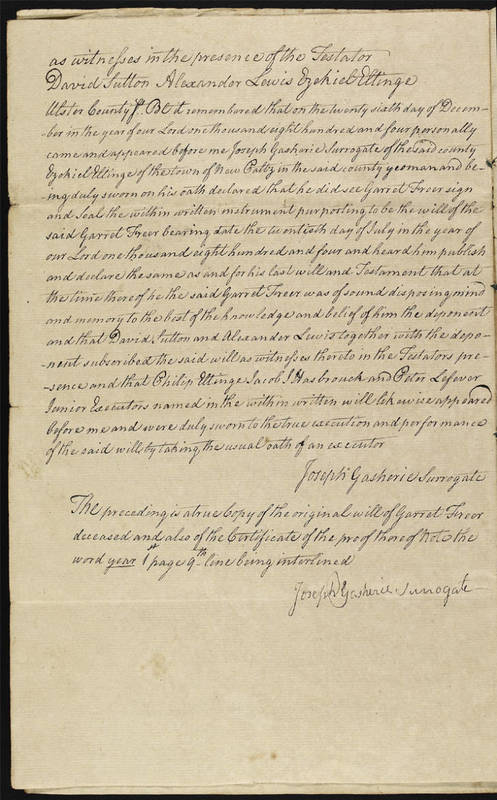 as witnesses in the presence of the Testator
David Sutton Alexander Lewis Ezekiel Eltinge
Ulster County Ss. Be it remembered that on the twenty sixth day of Decem-
ber in the year of our Lord one thousand eight hundred and four personally
came and appeared before me Joseph Gasherie Surrogate of the said county
Ezekiel Eltinge of the town of New Paltz in the said county yeoman and be-
ing duly sworn on his oath declared that he did see Garret Freer sign
and seal the within written instrument purporting to be the will of the
said Garret Freer bearing date the twentieth day of July in the year of
our Lord one thousand eight hundred and four and heard him publish
and declare the same as and for his last will and Testament that at
the time thereof he the said Garret Freer was of sound disposing mind
and memory to the best of the knowledge and belief of him the deponent
and that David Sutton and Alexander Lewis together with the depo-
nent subscribed the said will as witnesses thereto in the Testators pre-
sence and that Philip Eltinge Jacob J. Hasbrouck and Peter Lefever
Junior Executors named in the within written will likewise appeared
before me and were duly sworn to the true execution and performance
of the said will by taking the usual oath of an executor
Joseph Gasherie Surrogate
The preceding is a true Copy of the original will of Garret Freer
deceased and also of the Certificate of the proof thereof Note the
word year 1st page 9th line being interlined
Joseph Gasherie Surrogate